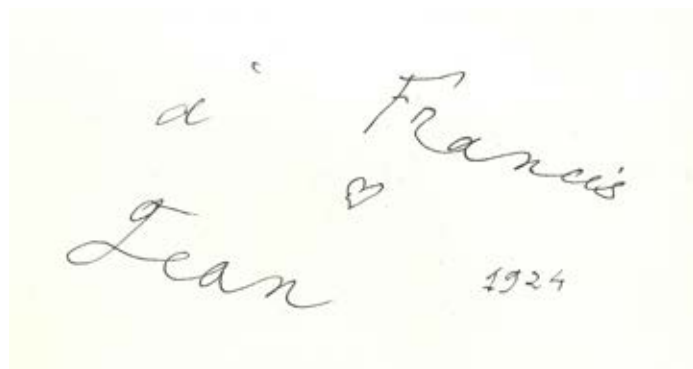 à Francis
Jean
1924